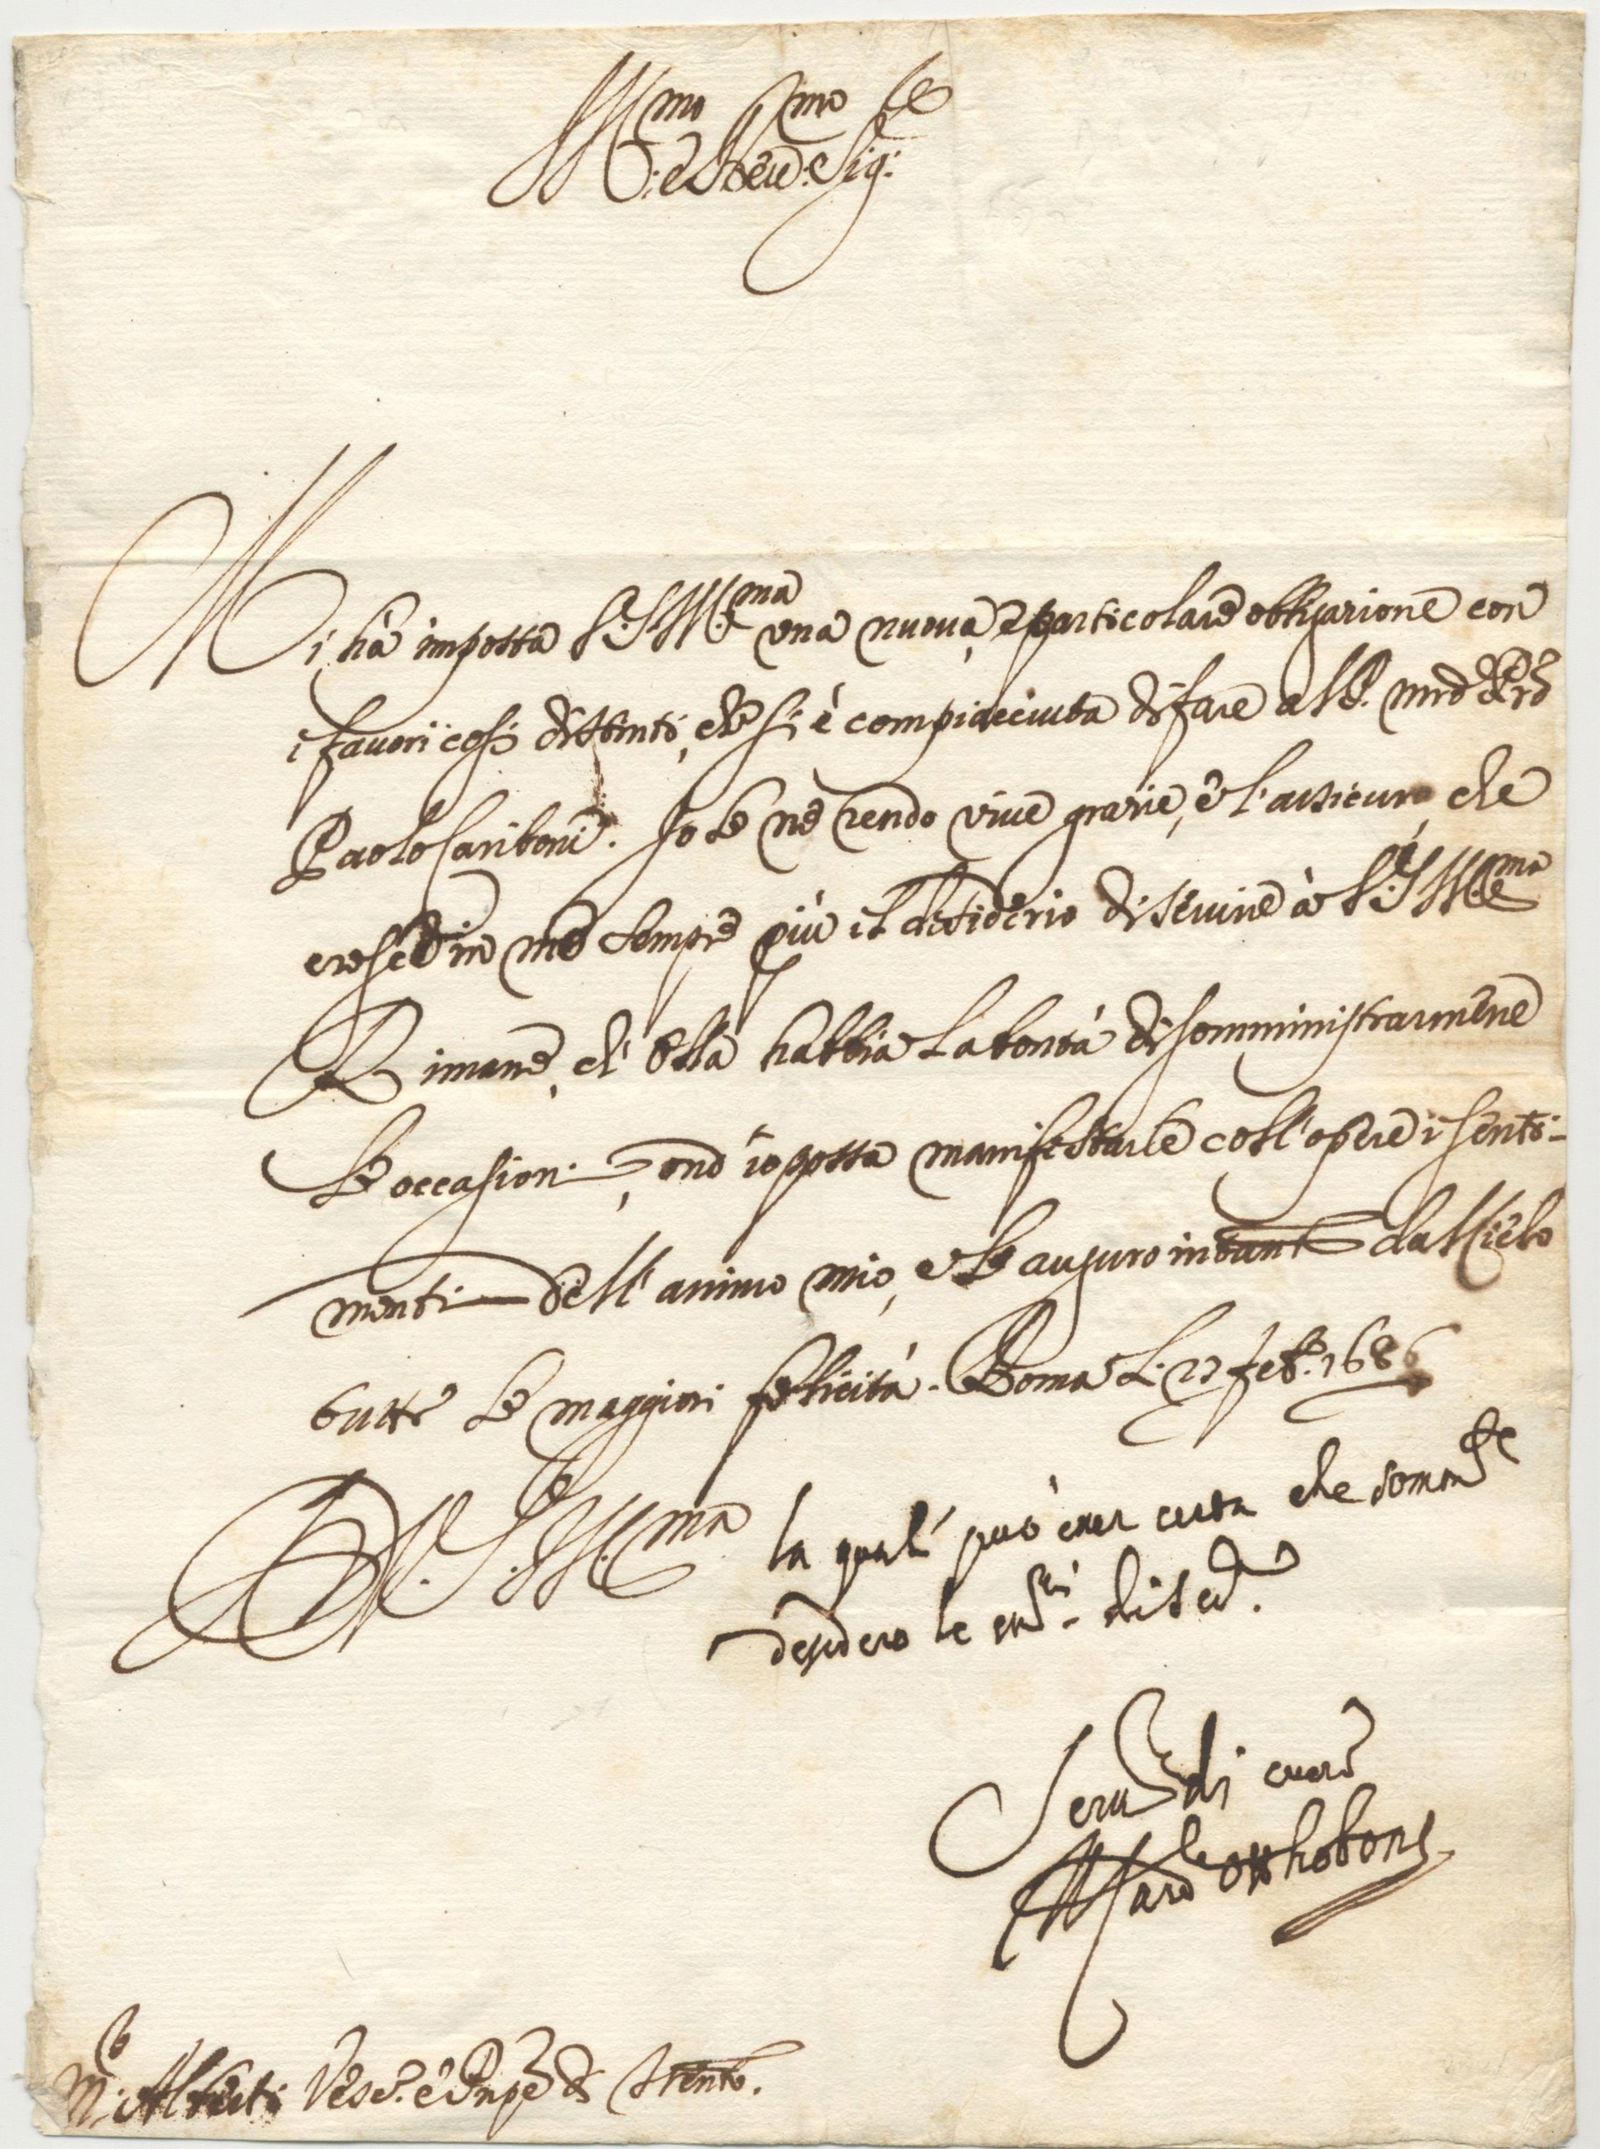 Ill.mo e Rev.mo Sig.re
Mi hà imposta V. S. Ill.ma una nuova, e particolare obligazione con
i favori così distinti, che si è compiacciuta di fare al P. mro
Paolo Cariboni. Io le ne rendo vive grazie, e l'assicuro, che
cresce in me sempre più il desiderio di servire à V. S. Ill.ma
Rimane, ch'ella habbia la bontà di somministrarmene
le occasioni, ond'io possa manifestarle coll'opere i senti-
menti dell'animo mio, e le auguro intanto dal Cielo
tutte le maggiori felicità. Roma li 23 feb.o 1686
D V. S. Ill.ma la qual può esser certa che somm.te
desidero le di
Serv.e di cuore
Il Card.le Otthoboni
M.r Alberti Vesc.o e Prnpe di Trento.